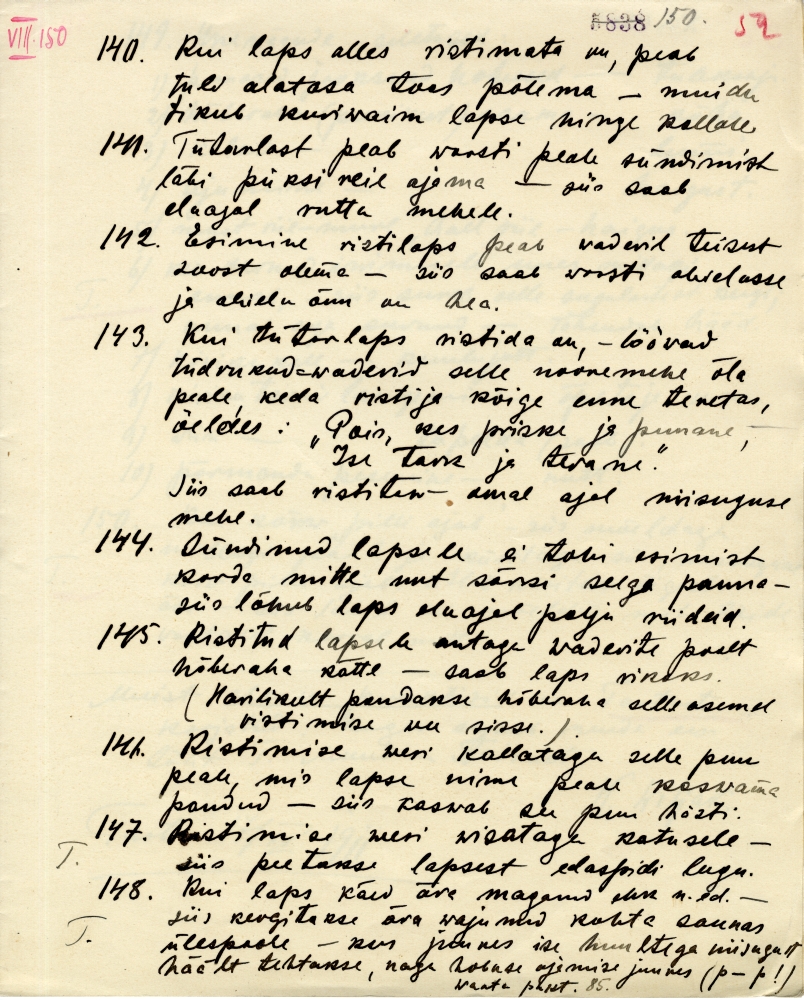 VIII.150
5838 150. 52
140. Kui laps alles ristimata on, peab
tuld alatasa toas põlema — muidu
tikub kuriwaim lapse ninge kallale
141. Tütarlast peab warsti peale sündimist
läbi püksi reie ajama — siis saab
eluajal ruttu mehele.
142. Esimine ristilaps peab waderil teisest
soost olema — siis saab warsti abielusse
ja abielu õnn on hea.
143. Kui tütarlaps ristida on, — löövad
tüdrukud-waderid selle nooremehe õla
peale, keda ristija kõige enne teretas,
öeldes: „Pois, kes priske ja punane, —
Ise tark ja terane".
Siis saab ristitaw omal ajal niisuguse
mehe.
144. Sündinud lapsele ei tohi esimist
korda mitte uut särki selga panna —
siis lõhub laps eluajal palju riideid.
145. Ristitud lapsele antagu waderite poolt
hõberaha kätte — saab laps rikaks.
(Harilikult pandakse hõberaha selle asemel
ristimise wee sisse.)
146. Ristimise wesi kallatagu selle puu
peale, mis lapse nime peale kaswama
pandud — siis kaswab see puu hästi.
147. Ristimise wesi wisatagu katusele —
T. siis peetakse lapsest edaspidi lugu.
148. Kui laps käed ära maganud ehk n.ed. —
siis kergitakse ära wajunud kohta saunas
T. ülespoole — kus juures ise huultega niisugust
häält tehtakse, nagu hobuse ajamise juures (p–p!)
waata parat. 85.